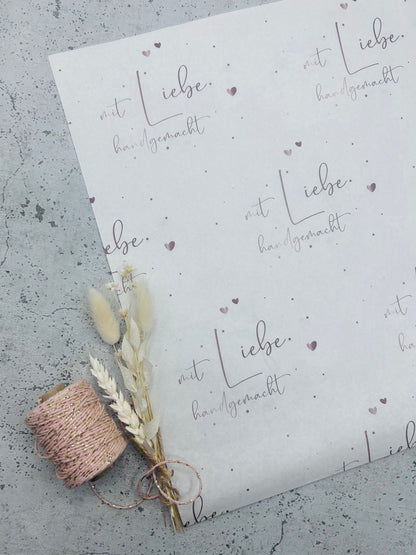 mit Liebe.
handgemacht
mit Liebe.
handgemacht
mit Liebe.
handgemacht
Liebe.
cht
mit
handgemac
mit Liebe.
handgemacht
Liebe.